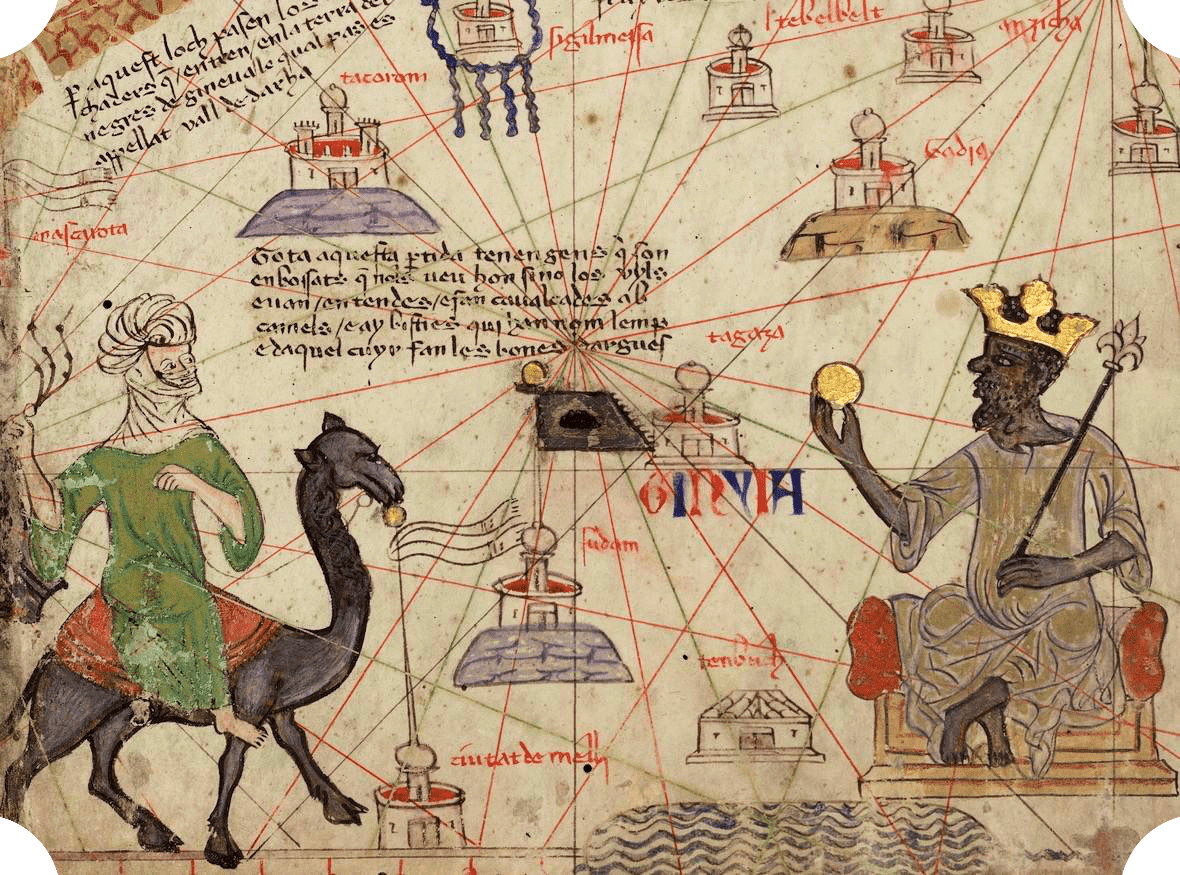 P aquest loch pasen los
chaders q entren en la terra del
negres de gineua le qual pas es
appellat vall de darha
sigilmessa
tebelbelt
tacorom
Tota aquesta ptida tenen gens q son
enbossats q nols ueu hom sino los uyls
euan / entendes / e fan caualcades ab
camels / e ay bisties qui han nom lemp
e daquel cuyr fan les bones dargues
tagaza
GINYIA
sudam
tenbuch
ciutat de melly